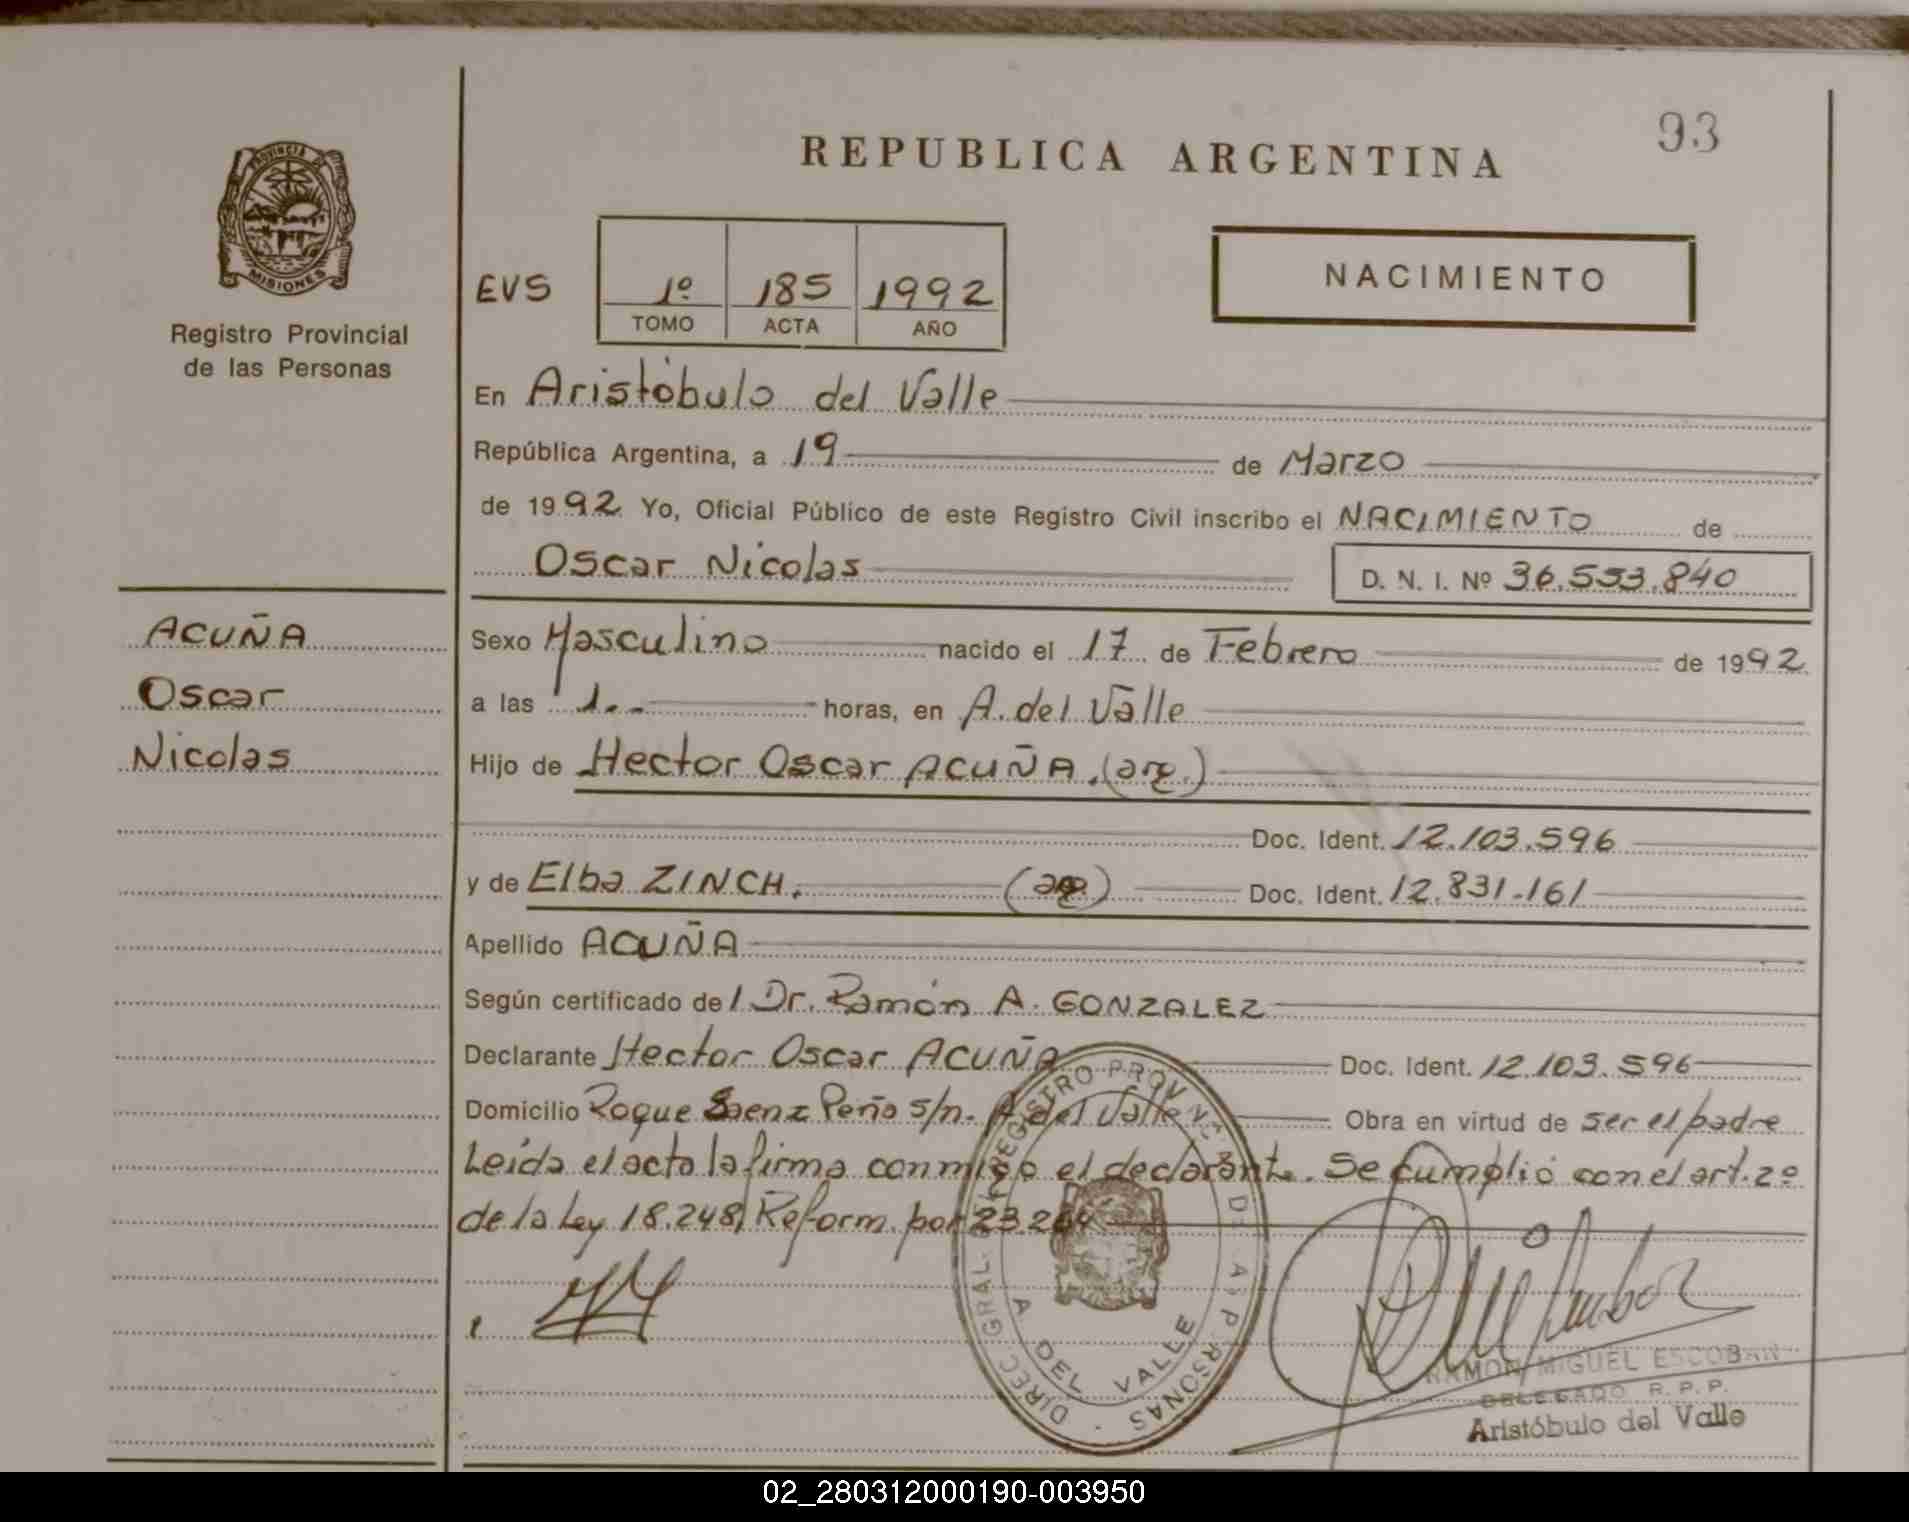 93
REPUBLICA ARGENTINA
PROVINCIA DE
MISIONES
Registro Provincial
de las Personas
EVS
1º 185 1992
TOMO ACTA AÑO
NACIMIENTO
En Aristóbulo del Valle
República Argentina, a 19 de Marzo
de 1992 Yo, Oficial Público de este Registro Civil inscribo el NACIMIENTO de
Oscar Nicolas D. N. I. Nº 36.553.840
ACUÑA
Oscar
Nicolas
Sexo Masculino nacido el 17 de Febrero de 1992
a las 1.-- horas, en A. del Valle
Hijo de Hector Oscar ACUÑA.(arg.)
Doc. Ident. 12.103.596
y de Elba ZINCH. (arg) Doc. Ident. 12.831.161
Apellido ACUÑA
Según certificado del Dr. Ramón A. GONZALEZ
Declarante Hector Oscar ACUÑA Doc. Ident. 12.103.596
Domicilio Roque Saenz Peña s/n. A. del Valle Obra en virtud de ser el padre
Leída el acta la firma conmigo el declarante. Se cumplió con el art. 2º
de la Ley 18.248, Reform. por 23.264
DIREC. GRAL. DEL REGISTRO PROVINC. DE LAS PERSONAS
A. DEL VALLE
RAMON MIGUEL ESCOBAR
DELEGADO R. P. P.
Aristóbulo del Valle
02_280312000190-003950